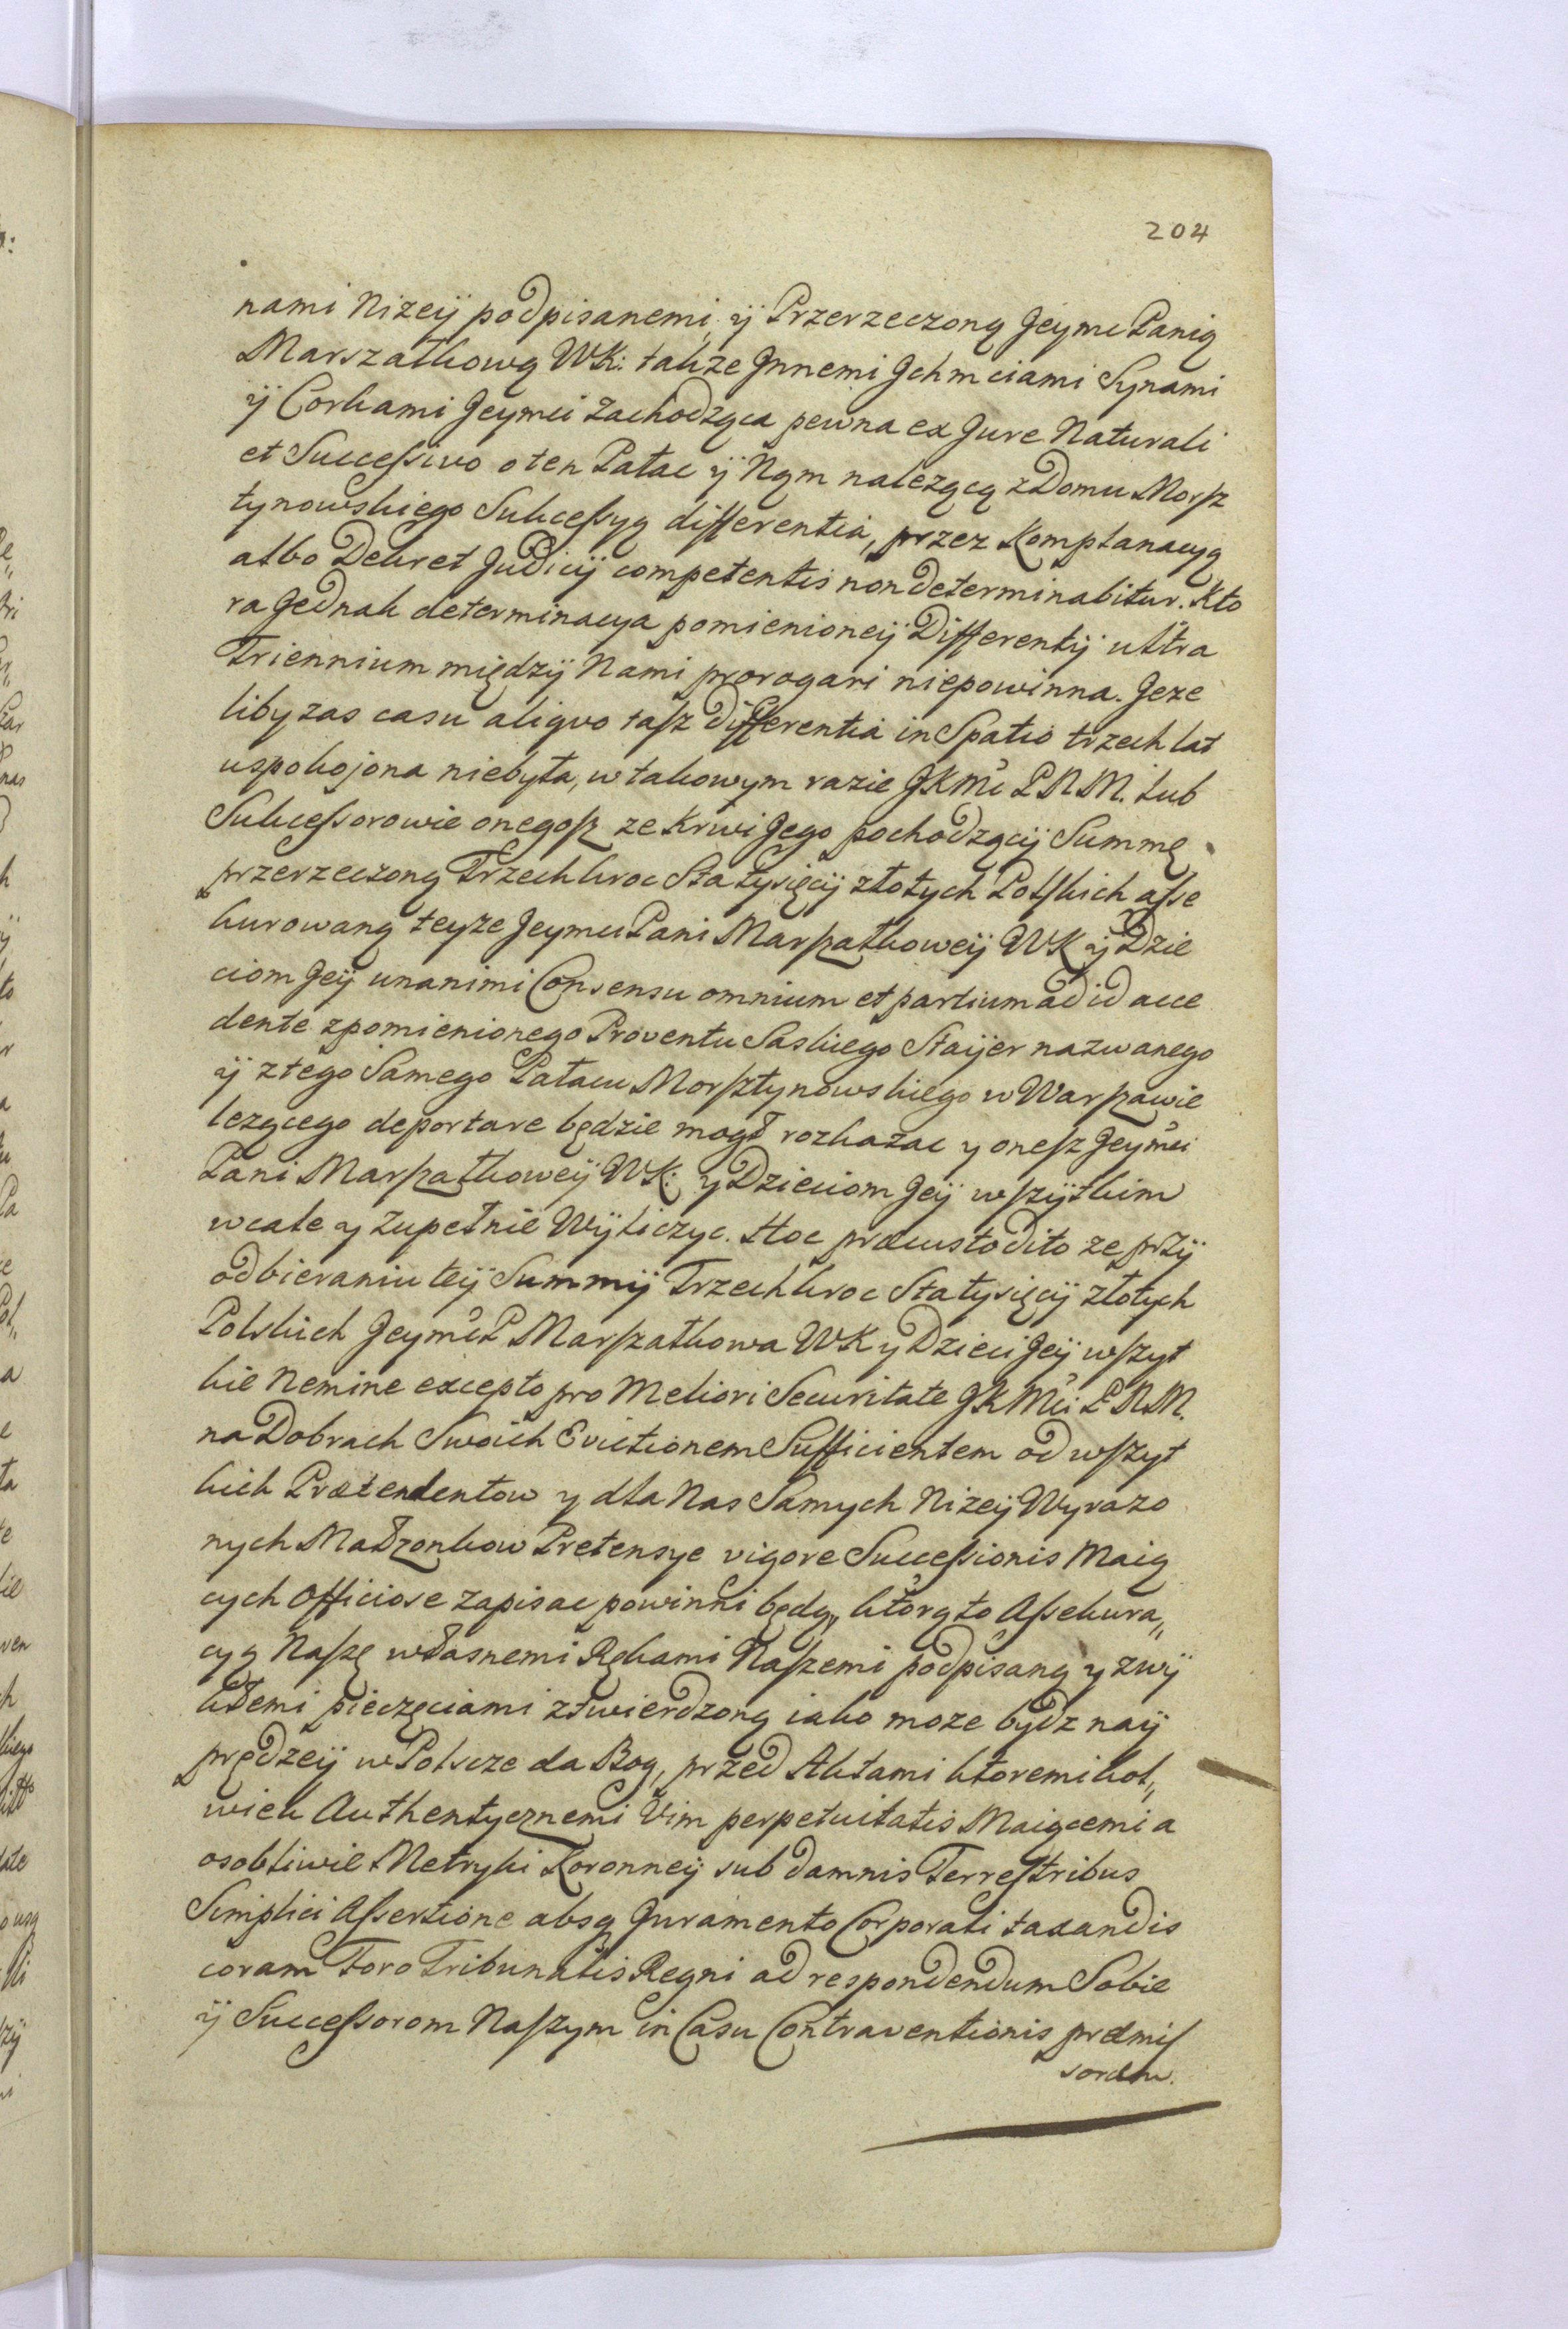 204
nami Nizeÿ podpisanemi, ÿ Przerzeczoną Jeymc Panią
Marszałkową WK: także Jnnemi Jchmciami Synami
ÿ Corkami Jeymci zachodząca pewna ex Jure Naturali
et Succeſsivo o ten Pałac ÿ Nąm nalezącą z Domu Morſz
tynowskiego Sukceſsyą differentia, przez Komplanacyą
albo Dekret Judicÿ competentis non determinabitur. Kto
ra Jednak determinacya pomienioneÿ Differentÿ ultra
Triennium międzÿ Nami prorogari niepowinna. Jeze
liby zas casu aliquo taſz differentia in Spatio trzech lat
uspokojona niebyła, w takowym razie JKMć P.N.M. lub
Sukceſsorowie onegoſz ze Krwi Jego pochodzącÿ Summę
przerzeczoną Trzechkroc Sta tysięcÿ złotych Polſkich aſse
kurowaną teyze Jeymci Pani Marſzałkoweÿ WK ÿ Dzie
ciom Jeÿ unanimi Consensu omnium et partium ad id acce
dente z pomienionego Proventu Saskiego Staÿer nazwanego
ÿ z tego Samego Pałacu Morſztynowskiego w Warſzawie
lezącego deportare będzie mogł rozkazac y oneſz Jeymći
Pani Marſzałkoweÿ WK: y Dzieciom Jeÿ wſzÿtkim
wcale y zupełnie Wÿliczyc. Hoc præcustodito ze przÿ
odbieraniu teÿ Summÿ Trzechkroc Sta tysięcÿ złotych
Polskich Jeymć P Marſzałkowa WK y Dzieci Jeÿ wſzyt
kie Nemine excepto pro Meliori Securitate JKMći P.N.M.
na Dobrach Swoich Evictionem Sufficientem od wſzyt
kich Prætendentow y dla Nas Samych Nizeÿ Wyrazo
nych Małzonkow Pretensye vigore Succeſsionis Maią
cych Officiose zapisac powinni będą, ktorą to Aſsekura„
cyą Naſzę własnemi Rękami Naſzemi podpisaną y zwÿ
kłemi pieczęciami ztwierdzoną iako moze bydz naÿ
prędzeÿ w Polscze da Bog, przed Aktami ktoremikol„
wiek Authentycznemi Vim perpetuitatis Maiącemi a
osobliwie Metryki Koronneÿ sub damnis Terreſtribus
Simplici Aſsertione absq Juramento Corporali taxandis
coram Foro Tribunalis Regni ad respondendum Sobie
ÿ Succeſsorom Naſzym in Casu Contraventionis præmiſ
sorum.